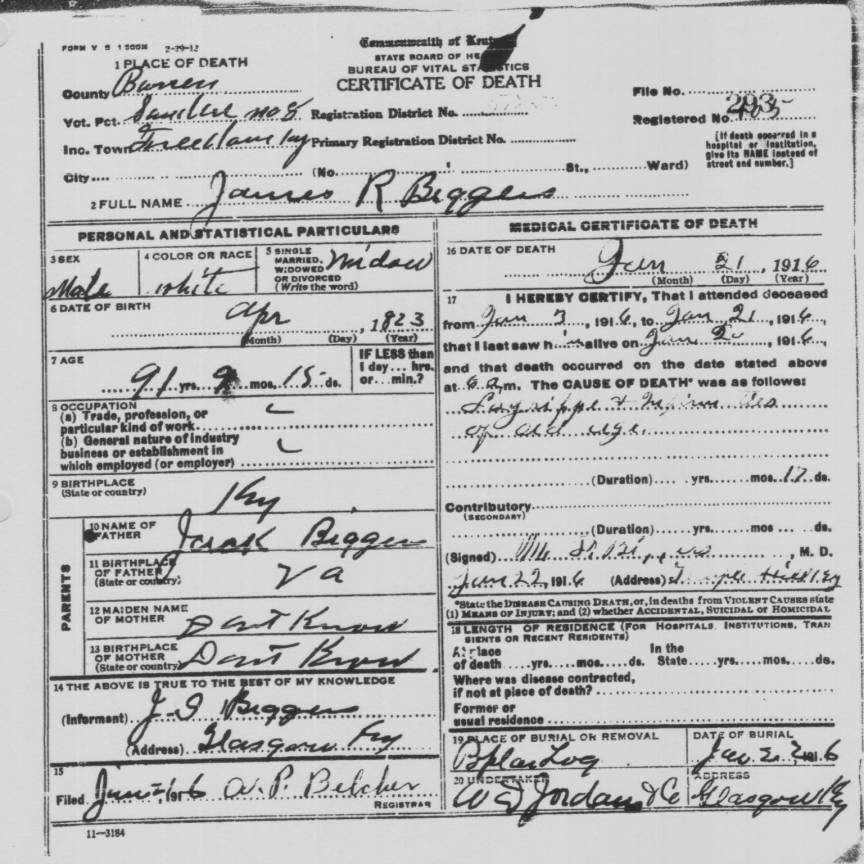 FORM V S 1 500M 2-29-12
Commonwealth of
STATE BOARD OF
BUREAU OF VITAL STATISTICS
CERTIFICATE OF DEATH
1 PLACE OF DEATH
County Barren
Vot. Pct. no 8 Registration District No.
Inc. Town Primary Registration District No.
City (No. St., Ward)
File No.
Registered No. 293
[If death occurred in a
hospital or institution,
give its NAME instead of
street and number.]
2 FULL NAME James R Biggers
PERSONAL AND STATISTICAL PARTICULARS
3 SEX
Male
4 COLOR OR RACE
white
5 SINGLE
MARRIED,
WIDOWED
OR DIVORCED
(Write the word)
Widow
6 DATE OF BIRTH
Apr , 1823
(Month) (Day) (Year)
7 AGE
91 yrs. 9 mos. 15 ds.
IF LESS than
1 day... hrs.
or... min.?
8 OCCUPATION
(a) Trade, profession, or
particular kind of work
(b) General nature of industry
business or establishment in
which employed (or employer)
9 BIRTHPLACE
(State or country)
Ky
PARENTS
10 NAME OF
FATHER
Biggers
11 BIRTHPLACE
OF FATHER
(State or country)
Va
12 MAIDEN NAME
OF MOTHER
Dont Know
13 BIRTHPLACE
OF MOTHER
(State or country)
Dont Know
14 THE ABOVE IS TRUE TO THE BEST OF MY KNOWLEDGE
(Informant) Biggers
(Address) Glasgow Ky
15
Filed , 1916 W. P. Belcher
REGISTRAR
11—3184
MEDICAL CERTIFICATE OF DEATH
16 DATE OF DEATH
Jan 21 , 1916
(Month) (Day) (Year)
17 I HEREBY CERTIFY, That I attended deceased
from Jan 3, 1916, to Jan 21, 1916,
that I last saw him alive on Jan 20, 1916,
and that death occurred on the date stated above
at 6 a.m. The CAUSE OF DEATH* was as follows:
Lagrippe + Infirmities
of old age.
(Duration) yrs. mos. 17 ds.
Contributory
(SECONDARY)
(Duration) yrs. mos ds.
(Signed) , M. D.
Jan 22, 1916 (Address) Temple Hill Ky
*State the DISEASE CAUSING DEATH, or, in deaths from VIOLENT CAUSES state
(1) MEANS OF INJURY; and (2) whether ACCIDENTAL, SUICIDAL OR HOMICIDAL
18 LENGTH OF RESIDENCE (FOR HOSPITALS, INSTITUTIONS, TRAN
SIENTS OR RECENT RESIDENTS)
At place In the
of death yrs. mos. ds. State yrs. mos. ds.
Where was disease contracted,
if not at place of death?
Former or
usual residence
19 PLACE OF BURIAL OR REMOVAL
Poplar Log
DATE OF BURIAL
Jan 22 1916
20 UNDERTAKER
Jordan & Co
ADDRESS
Glasgow Ky